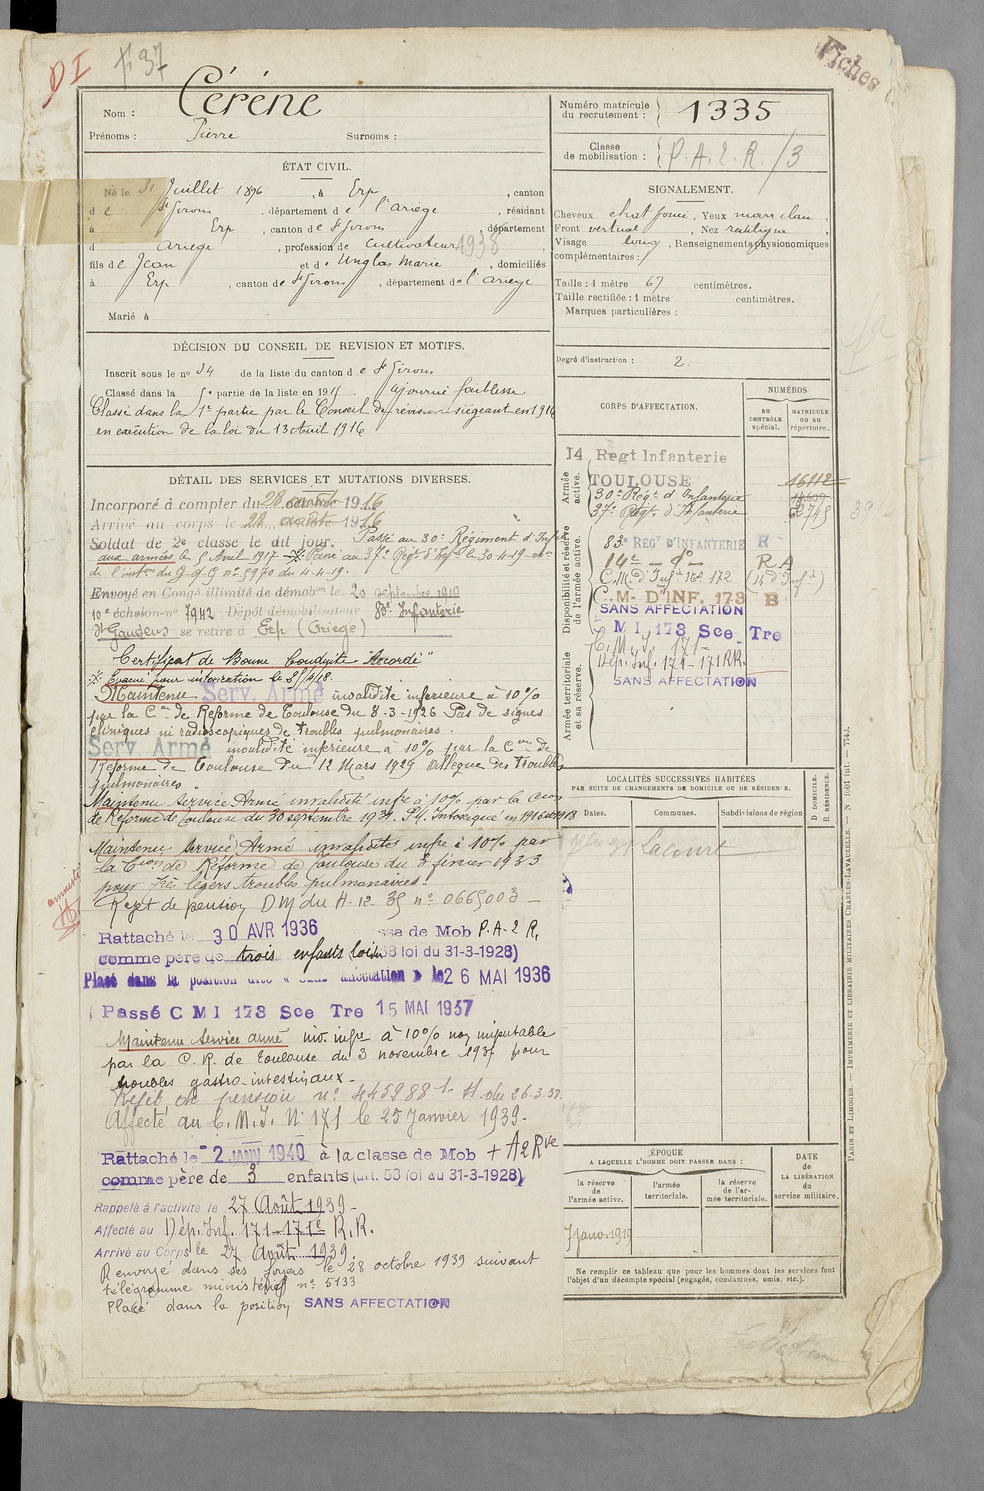 DI
Fiches
Nom : Cérène
Prénoms : Pierre Surnoms :
Numéro matricule du recrutement : 1335
Classe de mobilisation : P.A.2.R./3
ÉTAT CIVIL.
Né le 31 Juillet 1896, à Erp, canton
de St Girons, département de l'Ariège, résidant
à Erp, canton de St Girons, département
d Ariège, profession de Cultivateur 1938
fils de Jean et de Unglas Marie, domiciliés
à Erp, canton de St Girons, département de l'Ariège
Marié à
SIGNALEMENT.
Cheveux chat foncé, Yeux marr clair,
Front vertical, Nez rectiligne,
Visage long, Renseignements physionomiques
complémentaires :
Taille : 1 mètre 67 centimètres.
Taille rectifiée : 1 mètre centimètres.
Marques particulières :
DÉCISION DU CONSEIL DE REVISION ET MOTIFS.
Inscrit sous le no 34 de la liste du canton de St Girons
Classé dans la 5e partie de la liste en 1915 ajourné faiblesse
Classé dans la 1e partie par le Conseil de révision siégeant en 1916
en exécution de la loi du 13 Avril 1916
Degré d'instruction : 2.
CORPS D'AFFECTATION.
NUMÉROS
AU CONTRÔLE spécial.
MATRICULE OU AU répertoire.
Armée active.
14 Regt Infanterie
TOULOUSE 16112
30e Régt d'Infanterie
37e Régt d'Infanterie
Disponibilité et réserve de l'armée active.
83e REGT D'INFANTERIE R
14e - do - R A
C.M. D'INF. 173 B
SANS AFFECTATION
M I 173 Sce Tre
Armée territoriale et sa réserve.
C.M.I. 171-
Dép. Inf. 171-171 RR.
SANS AFFECTATION
DÉTAIL DES SERVICES ET MUTATIONS DIVERSES.
Incorporé à compter du 28 août 1916
Arrivé au corps le 28 août 1916
Soldat de 2e classe le dit jour. Passé au 30e Régiment d'Inf
aux armées le 5 Avril 1917 -※- Passé au 37e Regt d'Inf le 30-4-19-
de l'inston du G.Q.G no 5970 du 4-4-19.
Envoyé en Congé illimité de démobon le 20 septembre 1919
10e échelon-no 7942 Dépôt démobilisateur 83e Infanterie
St Gaudens se retire à Erp (Ariège)
Certificat de Bonne Conduite "Accordé"
※ Evacué pour intoxication le
Maintenu Serv. Armé invalidité inférieure à 10%
par la Con de Réforme de Toulouse du 8-3-1926 Pas de signes
cliniques ni radioscopiques de troubles pulmonaires.
Serv. Armé invalidité inférieure à 10% par la Con de
Réforme de Toulouse du 12 Mars 1929 Allègue des troubles
pulmonaires.
Maintenu Service Armé invalidité infre à 10% par la Con
de Réforme de Toulouse du 30 septembre 1931. Intoxiqué en 1916 et 1918
Maintenu Service Armé invalidités infre à 10% par
la Con de Réforme de Toulouse du 3 février 1933
pour très légers troubles pulmonaires.
Rejet de pension DM du 4-12-35 no 0665003 -
Rattaché le 30 AVR 1936 sse de Mob P.A.2R,
comme père de trois enfants (loi 58 loi du 31-3-1928)
Placé dans la position dite « sans affectation » le 26 MAI 1936
Passé C M I 173 Sce Tre 15 MAI 1937
Maintenu Service armé inv. infre à 10% non imputable
par la C.R. de Toulouse du 3 novembre 1937 pour
troubles gastro-intestinaux -
Rejet de pension no 445988 du 26.3.38.
Affecté au C.M.I. No 171 le 25 Janvier 1939-
Rattaché le 2 JANV 1940 à la classe de Mob + A2Rve
comme père de 3 enfants (art. 58 loi du 31-3-1928)
Rappelé à l'activité le 27 Août 1939-
Affecté au Dép. Inf. 171-171e R.R.
Arrivé au Corps le 27 Août 1939.
Renvoyé dans ses foyers le 28 octobre 1939 suivant
télégramme ministériel no 5133
Placé dans la position SANS AFFECTATION
LOCALITÉS SUCCESSIVES HABITÉES
PAR SUITE DE CHANGEMENTS DE DOMICILE OU DE RÉSIDENCE.
Dates. Communes. Subdivisions de région
D. DOMICILE. R. RÉSIDENCE.
Lacourt
ÉPOQUE
A LAQUELLE L'HOMME DOIT PASSER DANS :
la réserve de l'armée active.
l'armée territoriale.
la réserve de l'armée territoriale.
DATE de LA LIBÉRATION du service militaire.
7 janv 1919
Ne remplir ce tableau que pour les hommes dont les services font
l'objet d'un décompte spécial (engagés, condamnés, omis, etc.).
PARIS ET LIMOGES. — IMPRIMERIE ET LIBRAIRIE MILITAIRES CHARLES-LAVAUZELLE.